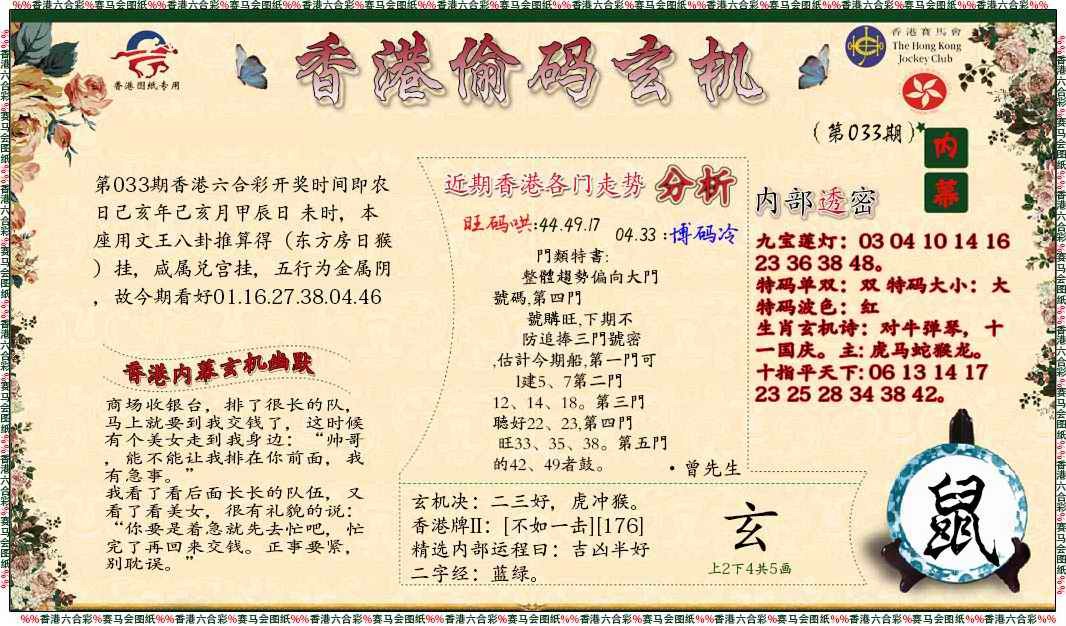 %%香港六合彩%赛马会图纸%%香港六合彩%赛马会图纸%%香港六合彩%赛马会图纸%%香港六合彩%赛马会图纸%%香港六合彩%赛马会图纸%%香港六合彩%赛马会图纸%%香港六合彩%%
香港图纸专用
香港偷码玄机
香港賽馬會
The Hong Kong
Jockey Club
(第033期)
内
幕
第033期香港六合彩开奖时间即农
日己亥年己亥月甲辰日 未时，本
座用文王八卦推算得（东方房日猴
）挂，咸属兑宫挂，五行为金属阴
，故今期看好01.16.27.38.04.46
香港内幕玄机幽默
商场收银台，排了很长的队，
马上就要到我交钱了，这时候
有个美女走到我身边：“帅哥
，能不能让我排在你前面，我
有急事。”
我看了看后面长长的队伍，又
看了看美女，很有礼貌的说：
“你要是着急就先去忙吧，忙
完了再回来交钱。正事要紧，
别耽误。”
近期香港各门走势 分析
旺码哄:44.49.17
04.33 :博码冷
門類特書:
整體趨勢偏向大門
號碼,第四門
號購旺,下期不
防追捧三門號密
,估計今期船,第一門可
1建5、7第二門
12、14、18。第三門
聽好22、23,第四門
旺33、35、38。第五門
的42、49者鼓。
·曾先生
内部透密
九宝莲灯：03 04 10 14 16
23 36 38 48。
特码单双：双 特码大小：大
特码波色：红
生肖玄机诗：对牛弹琴，十
一国庆。主: 虎马蛇猴龙。
十指平天下: 06 13 14 17
23 25 28 34 38 42。
玄机决：二三好，虎冲猴。
香港牌II：[不如一击][176]
精选内部运程曰：吉凶半好
二字经：蓝绿。
玄
上2下4共5画
鼠
%%香港六合彩%赛马会图纸%%香港六合彩%赛马会图纸%%香港六合彩%赛马会图纸%%香港六合彩%赛马会图纸%%香港六合彩%赛马会图纸%%香港六合彩%赛马会图纸%%香港六合彩%%